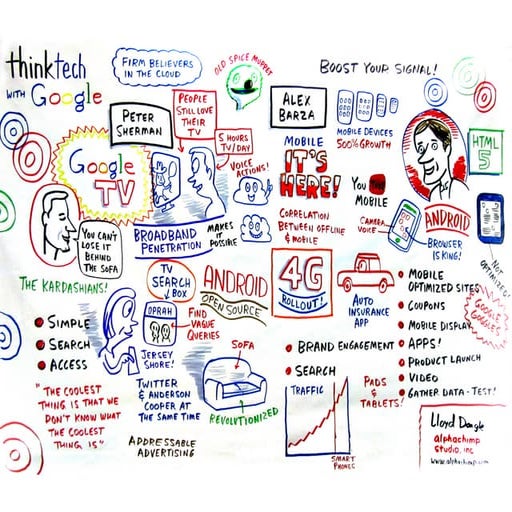 thinktech
WITH Google
FIRM BELIEVERS
IN THE CLOUD
OLD SPICE MUPPET
BOOST YOUR SIGNAL!
PETER
SHERMAN
PEOPLE
STILL LOVE
THEIR
TV
5 HOURS
TV/DAY
VOICE
ACTIONS!
Google
TV
YOU CAN'T
LOSE IT
BEHIND
THE SOFA
BROADBAND
PENETRATION
MAKES
IT
POSSIBLE
ALEX
BARZA
MOBILE
IT'S
HERE!
CORRELATION
BETWEEN OFFLINE
& MOBILE
MOBILE DEVICES
500% GROWTH
YOU
MOBILE
CAMERA
VOICE
HTML
5
ANDROID
BROWSER
IS KING!
NOT
OPTIMIZED!
THE KARDASHIANS!
SIMPLE
SEARCH
ACCESS
"THE COOLEST
THING IS THAT WE
DON'T KNOW WHAT
THE COOLEST
THING IS."
TV
SEARCH
BOX
OPRAH
FIND
VAGUE
QUERIES
JERSEY
SHORE!
TWITTER
& ANDERSON
COOPER AT
THE SAME TIME
ADDRESSABLE
ADVERTISING
ANDROID
OPEN SOURCE
SOFA
REVOLUTIONIZED
4G
ROLLOUT!
AUTO
INSURANCE
APP
BRAND ENGAGEMENT
SEARCH
TRAFFIC
SMART
PHONES
PADS
&
TABLETS!
MOBILE
OPTIMIZED SITES
COUPONS
MOBILE DISPLAY
APPS!
PRODUCT LAUNCH
VIDEO
GATHER DATA - TEST!
GOOGLE
GOGGLES
Lloyd Dangle
alphachimp
studio, inc
www.alphachimp.com